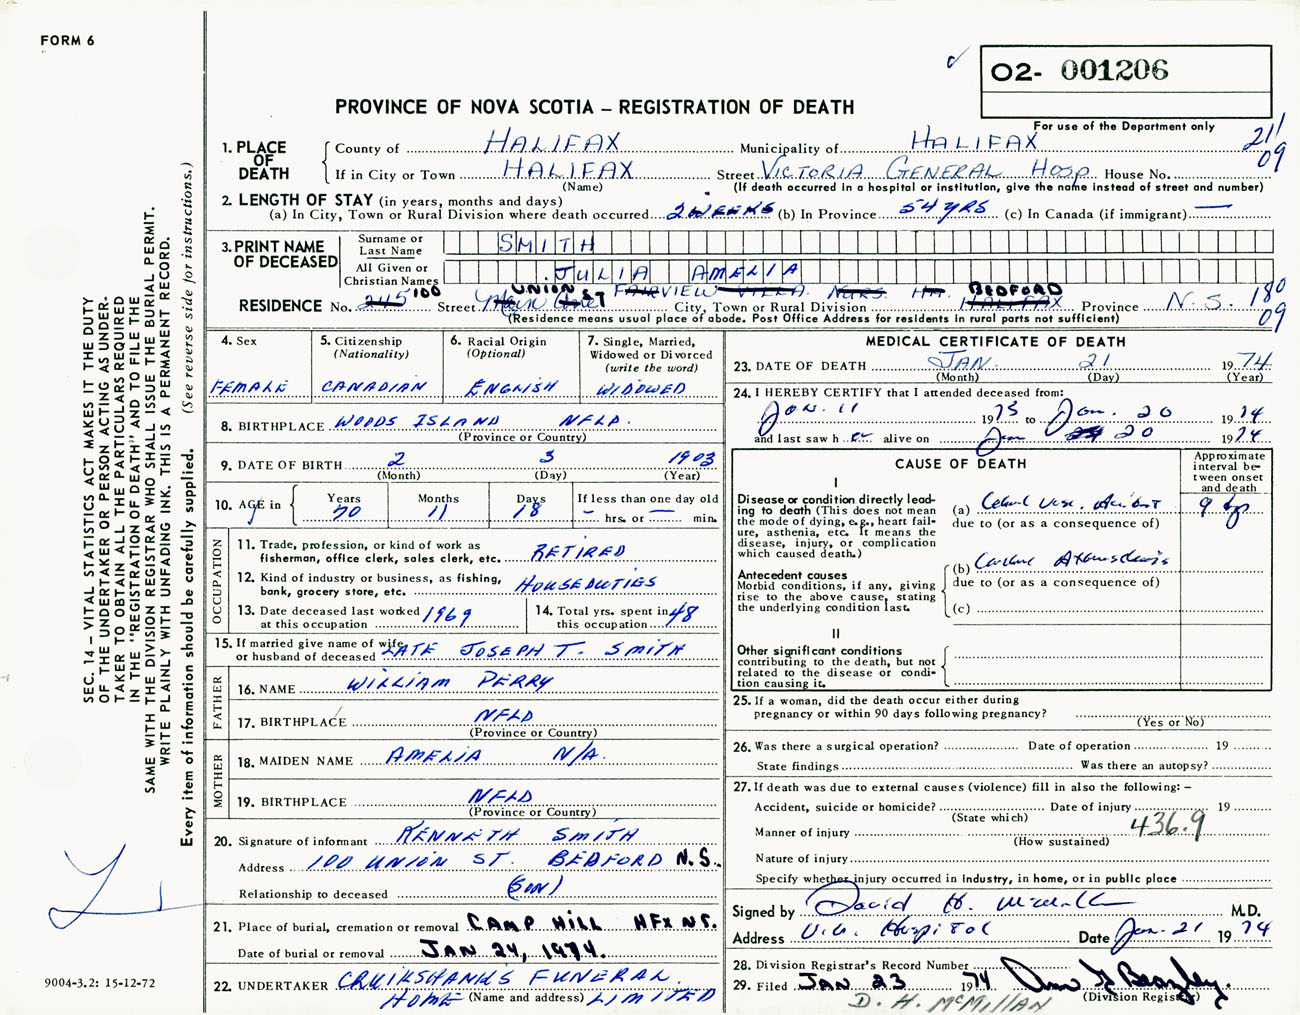 FORM 6
O2- 001206
PROVINCE OF NOVA SCOTIA – REGISTRATION OF DEATH
For use of the Department only
211
09
1. PLACE OF DEATH
County of HALIFAX Municipality of HALIFAX
If in City or Town HALIFAX Street VICTORIA GENERAL HOSP House No.
(Name) (If death occurred in a hospital or institution, give the name instead of street and number)
2. LENGTH OF STAY (in years, months and days)
(a) In City, Town or Rural Division where death occurred 2 WEEKS (b) In Province 54 YRS (c) In Canada (if immigrant) —
3. PRINT NAME OF DECEASED
Surname or Last Name SMITH
All Given or Christian Names JULIA AMELIA
RESIDENCE No. 245 100 Street UNION ST FAIRVIEW VILLA NURS HM City, Town or Rural Division HALIFAX BEDFORD Province N.S. 180
09
(Residence means usual place of abode. Post Office Address for residents in rural parts not sufficient)
4. Sex
FEMALE
5. Citizenship
(Nationality)
CANADIAN
6. Racial Origin
(Optional)
ENGLISH
7. Single, Married, Widowed or Divorced
(write the word)
WIDOWED
8. BIRTHPLACE WOODS ISLAND NFLD.
(Province or Country)
9. DATE OF BIRTH 2 3 1903
(Month) (Day) (Year)
10. AGE in Years Months Days If less than one day old
70 11 18 — hrs. or — min.
OCCUPATION
11. Trade, profession, or kind of work as fisherman, office clerk, sales clerk, etc. RETIRED
12. Kind of industry or business, as fishing, bank, grocery store, etc. HOUSEDUTIES
13. Date deceased last worked at this occupation 1969
14. Total yrs. spent in this occupation 48
15. If married give name of wife or husband of deceased LATE JOSEPH T. SMITH
FATHER
16. NAME WILLIAM PERRY
17. BIRTHPLACE NFLD
(Province or Country)
MOTHER
18. MAIDEN NAME AMELIA N/A.
19. BIRTHPLACE NFLD
(Province or Country)
20. Signature of informant KENNETH SMITH
Address 100 UNION ST. BEDFORD N.S.
Relationship to deceased (SON)
21. Place of burial, cremation or removal CAMP HILL HFX NS.
Date of burial or removal JAN 24, 1974.
22. UNDERTAKER CRUIKSHANK'S FUNERAL
HOME (Name and address) LIMITED
MEDICAL CERTIFICATE OF DEATH
23. DATE OF DEATH JAN. 21 1974
(Month) (Day) (Year)
24. I HEREBY CERTIFY that I attended deceased from:
Jan. 11 1973 to Jan. 20 1974
and last saw her alive on Jan 20 1974
CAUSE OF DEATH
Approximate interval between onset and death
I
Disease or condition directly leading to death (This does not mean the mode of dying, e.g., heart failure, asthenia, etc. It means the disease, injury, or complication which caused death.)
(a) Vasc. Accident
due to (or as a consequence of)
Antecedent causes
Morbid conditions, if any, giving rise to the above cause, stating the underlying condition last.
(b)
due to (or as a consequence of)
(c)
II
Other significant conditions
contributing to the death, but not related to the disease or condition causing it.
25. If a woman, did the death occur either during pregnancy or within 90 days following pregnancy?
(Yes or No)
26. Was there a surgical operation? Date of operation 19
State findings Was there an autopsy?
27. If death was due to external causes (violence) fill in also the following: –
Accident, suicide or homicide? Date of injury 19
(State which)
Manner of injury 436.9
(How sustained)
Nature of injury
Specify whether injury occurred in industry, in home, or in public place
Signed by David H. McMillan M.D.
Address V.G. Hospital Date Jan. 21 1974
28. Division Registrar's Record Number
29. Filed JAN 23 1974
(Division Registrar)
D. H. McMILLAN
SEC. 14 – VITAL STATISTICS ACT MAKES IT THE DUTY
OF THE UNDERTAKER OR PERSON ACTING AS UNDER-
TAKER TO OBTAIN ALL THE PARTICULARS REQUIRED
IN THE "REGISTRATION OF DEATH" AND TO FILE THE
SAME WITH THE DIVISION REGISTRAR WHO SHALL ISSUE THE BURIAL PERMIT.
WRITE PLAINLY WITH UNFADING INK. THIS IS A PERMANENT RECORD.
Every item of information should be carefully supplied. (See reverse side for instructions.)
9004-3.2: 15-12-72